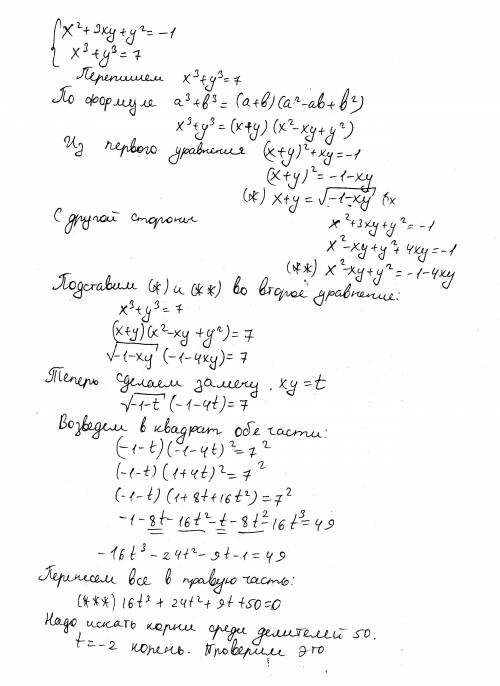 { x² + 3xy + y² = -1
x³ + y³ = 7
Перепишем x³ + y³ = 7
По формуле a³ + b³ = (a+b)(a² - ab + b²)
x³ + y³ = (x+y)(x² - xy + y²)
Из первого уравнения (x+y)² + xy = -1
(x+y)² = -1 - xy
(*) x + y = √(-1-xy) (x
С другой стороны x² + 3xy + y² = -1
x² - xy + y² + 4xy = -1
(**) x² - xy + y² = -1 - 4xy
Подставим (*) и (**) во второе уравнение:
x³ + y³ = 7
(x+y)(x² - xy + y²) = 7
√(-1-xy) (-1-4xy) = 7
Теперь сделаем замену. xy = t
√(-1-t) (-1-4t) = 7
Возведем в квадрат обе части:
(-1-t)(-1-4t)² = 7²
(-1-t)(1+4t)² = 7²
(-1-t)(1+8t+16t²) = 7²
-1 - 8t - 16t² - t - 8t² - 16t³ = 49
-16t³ - 24t² - 9t - 1 = 49
Перенесем все в правую часть:
(***) 16t³ + 24t² + 9t + 50 = 0
Надо искать корни среди делителей 50.
t = -2 корень. Проверим это